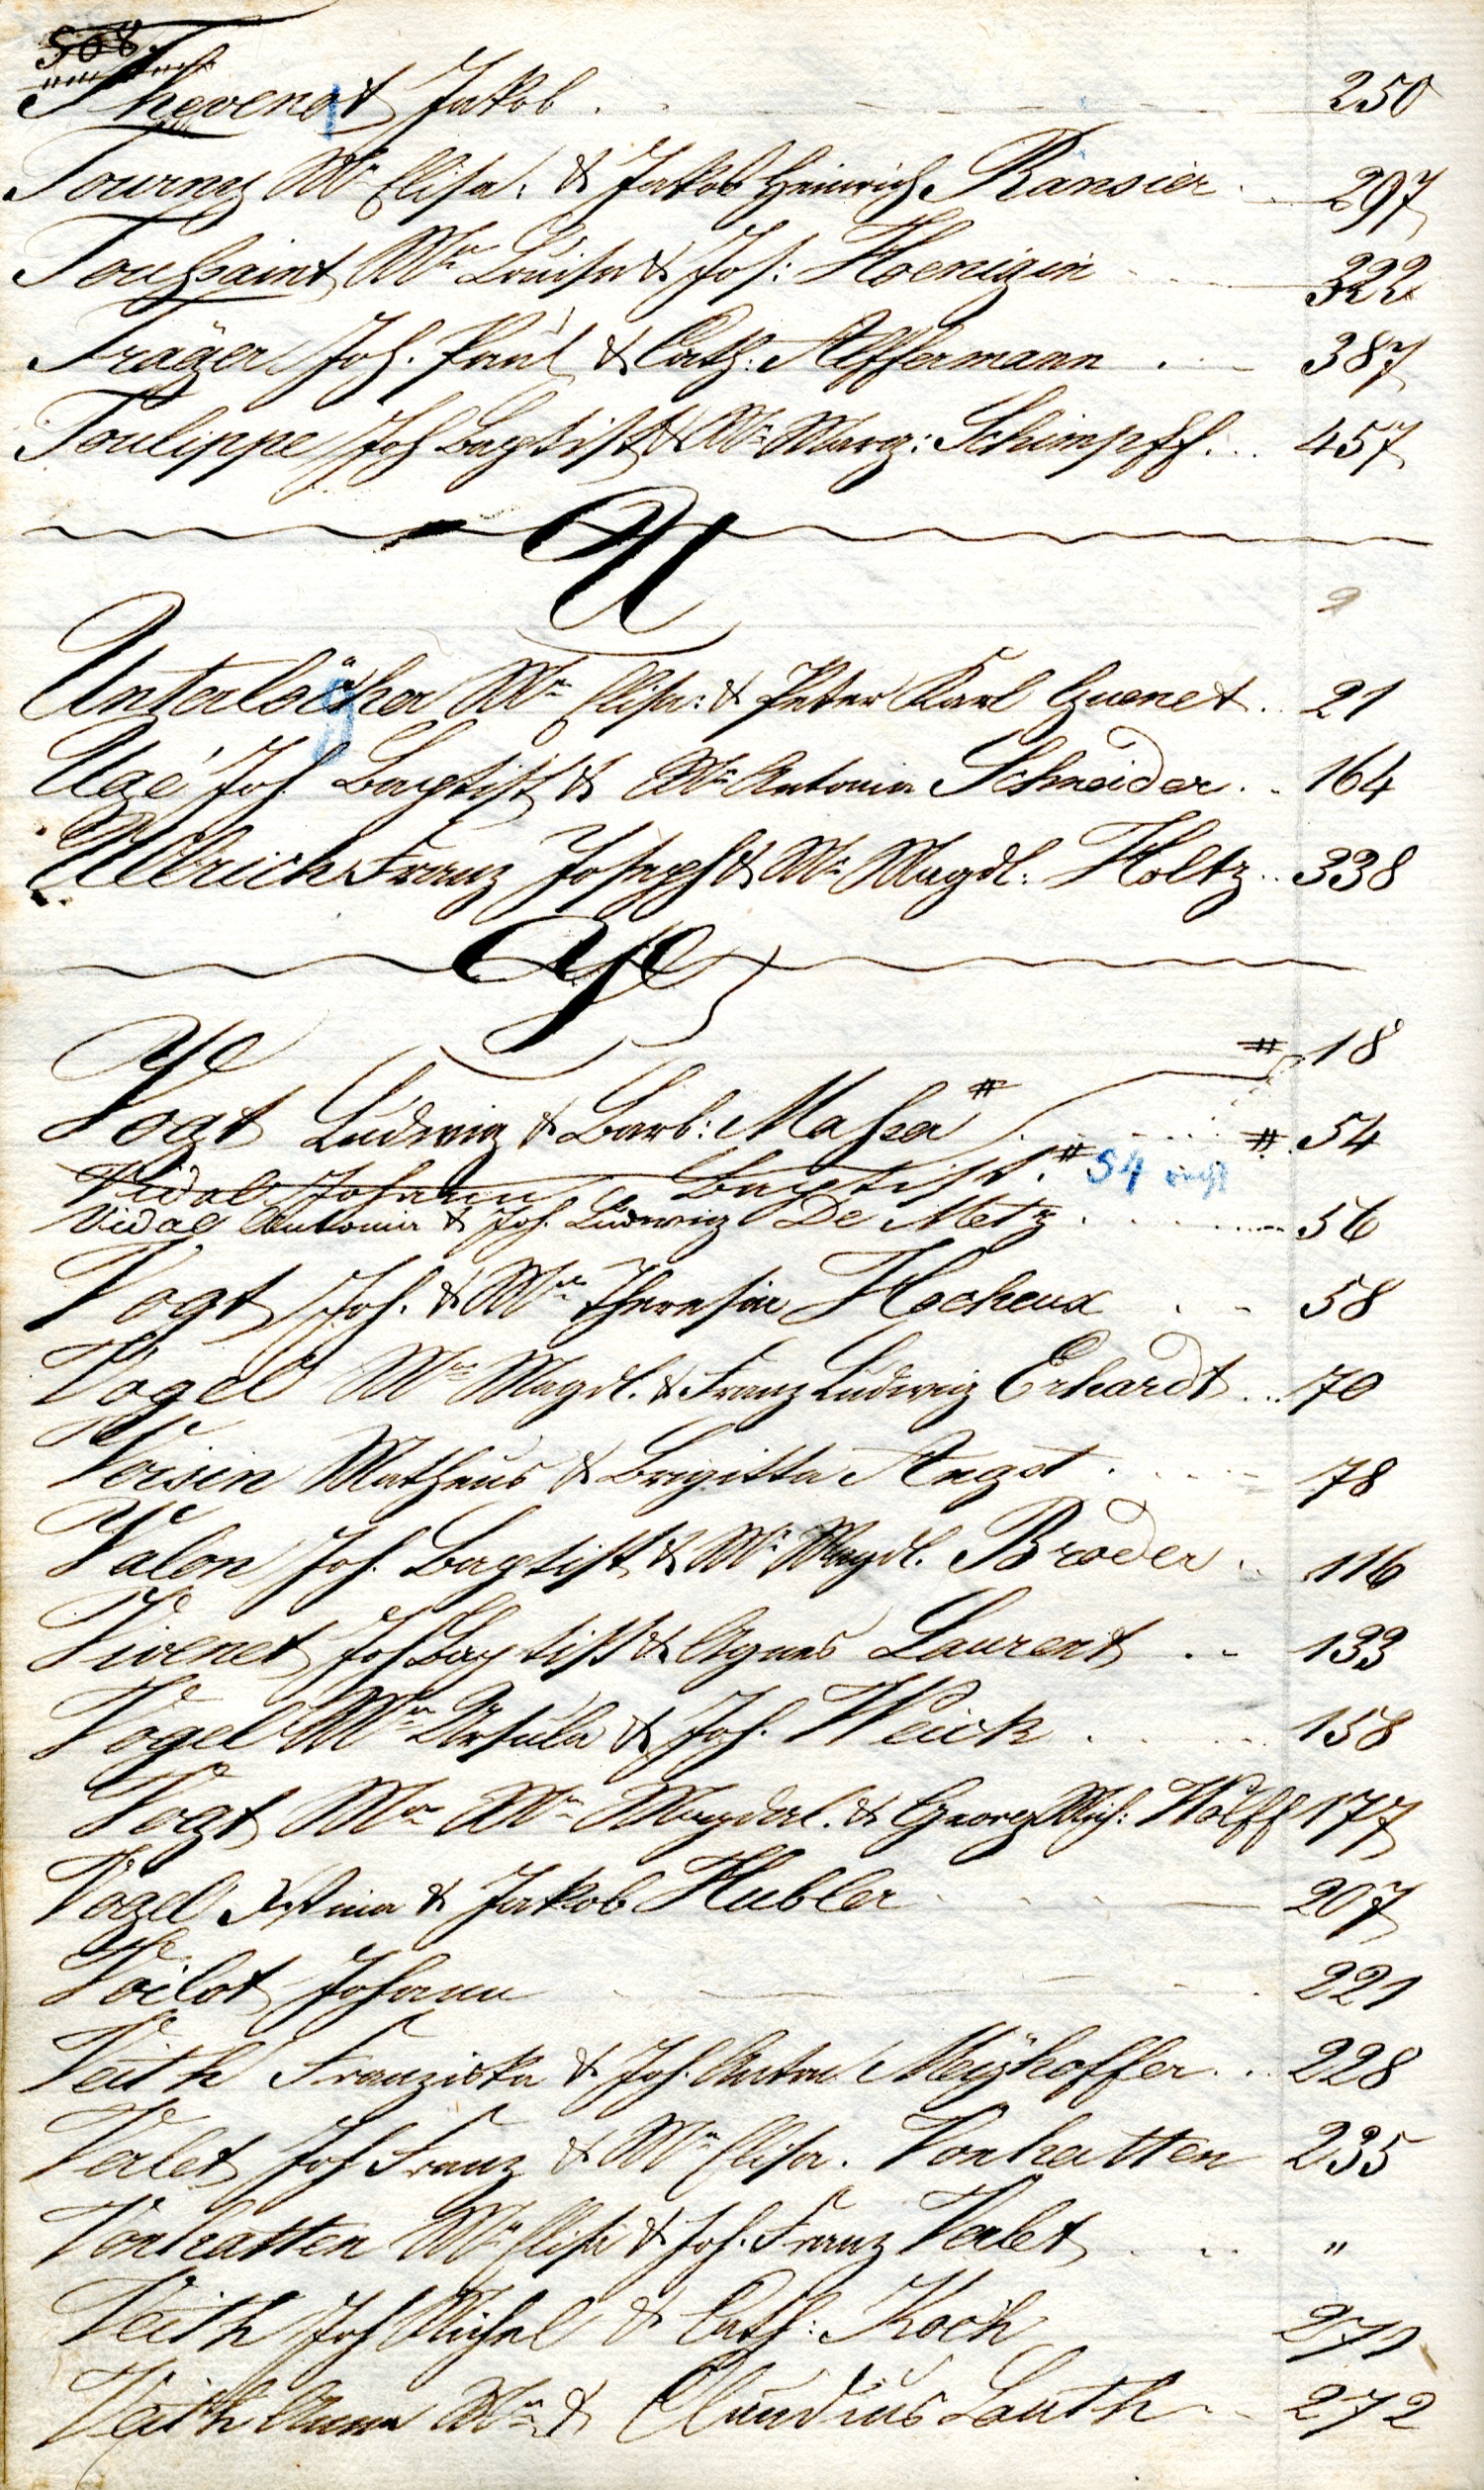 508.
Thevenot Jakob . 250
Tourney Mr Elisa. & Jakob Heinrich Ransier . 297
Toussaint Mr Louisa & Jos: Hoenigin 322
Träger Joh. Paul & Cath: Affermann . 387
Toulippe Joh Baptist & Mr Marg: Schimpff. .. 457
U
Unterlöcher Mr Elisa: & Peter Karl Guenet . 21
Ugé Joh. Baptist & Mr Antonia Schneider . . 164
Ullrich Franz Joseph & Mr Magdl. Holtz .. 338
V
# 18
Vogt Ludwig & Barb: Massa # # 54
Vidal Johann Baptist. # 54
Vidal Antonia & Joh. Ludwig De Metz . 56
Vogt Joh. & Mr Theresia Hocheux . . 58
Vogel Mr Magdl. & Franz Ludwig Erhardt .. 70
Voisin Matheus & Brigitta Angst . 78
Valon Joh. Baptist & Mr Magdl. Broder . 116
Vivenet Joh Baptist & Agnes Laurent . . 133
Vogel Mr Ursula & Joh. Weick . 158
Vogt Mr Magdal. & Georg Mich: Wolff 177
Vogel & Jakob Hubler 207
Voilot Johann 221
Veith Franziska & Joh. Anton Meÿhoffer . . 228
Valet Joh Franz & Mr Elisa. Vonhatten 235
Vonhatten Mr Elisa & Joh. Franz Valet . . "
Veith Joh Michel & Cath: Koch 271
Veith Anna Mr & Claudius Lauth . . 272